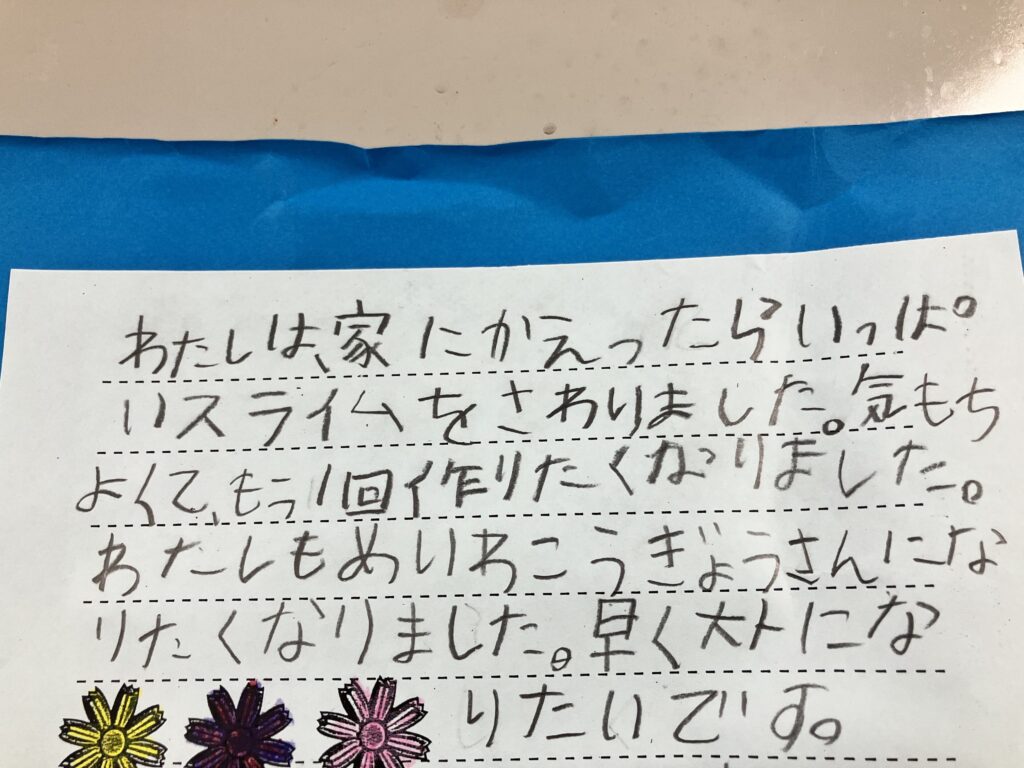 わたしは、家にかえったらいっぱ
いスライムをさわりました。気もち
よくて、もう1回作りたくなりました。
わたしもめいわこうぎょうさんにな
りたくなりました。早く大人にな
りたいです。